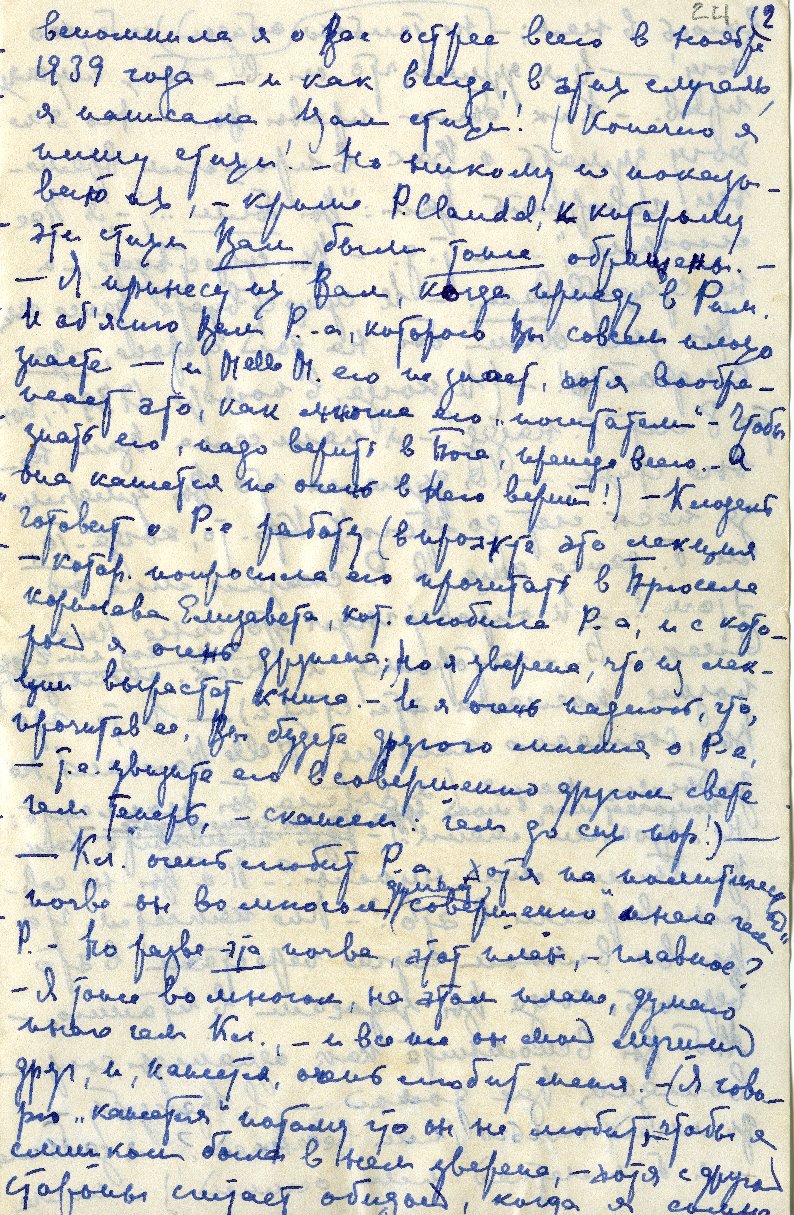 24 (2
вспомнила я о Вас острее всего в ноябре
1939 года — и как всегда, в этих случаях,
я написала Вам стихи! (Конечно я
пишу стихи! — Но никому не показы-
ваю их, — кроме P. Claudel, к которому
эти стихи Вам были тоже обращены. —
— Я принесу их Вам, когда приеду в Рим.
И об'ясню Вам Р.-а, которого Вы совсем плохо
знаете — (и Melle H. его не знает, хотя вообра-
жает это, как многие его „почитатели" — Чтобы
знать его, надо верить в Бога, прежде всего. — А
она кажется не очень в Него верит!) — Клодель
готовит о Р-е работу (в проэкте это лекция
— котор. попросила его прочитать в Брюсселе
королева Елизавета, кот. любила Р.-а, и с кото-
рой я очень дружна;) но я уверена, что из лек-
ции вырастет книга. — И я очень надеюсь, что,
прочитав ее, Вы будете другого мнения о Р-е,
— т.е. увидите его в совершенно другом свете
чем теперь, — скажем: чем до сих пор!) —
— Кл. очень любит Р-а, хотя на политической
почве он во многом думает „совершенно" иначе чем
Р. — Но разве эта почва, этот план, — главное?
— Я тоже во многом, на этом плане, думаю
иначе чем Кл., — и все же он мой лучший
друг, и, кажется, очень любит меня. — (Я гово-
рю „кажется" потому что он не любит, чтобы я
слишком была в нем уверена, — хотя с другой
стороны считает обидой, когда я